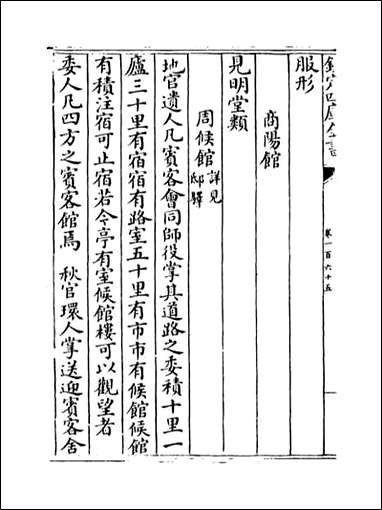 欽定四庫全書
卷一百六十五
服形
商陽館
見明堂類
周候館詳見邸驛
地官遺人凡賓客會同師役掌其道路之委積十里一
廬三十里有宿宿有路室五十里有市市有候館候館
有積注宿可止宿若今亭有室候館樓可以觀望者
委人凡四方之賓客館焉 秋官環人掌送迎賓客舍